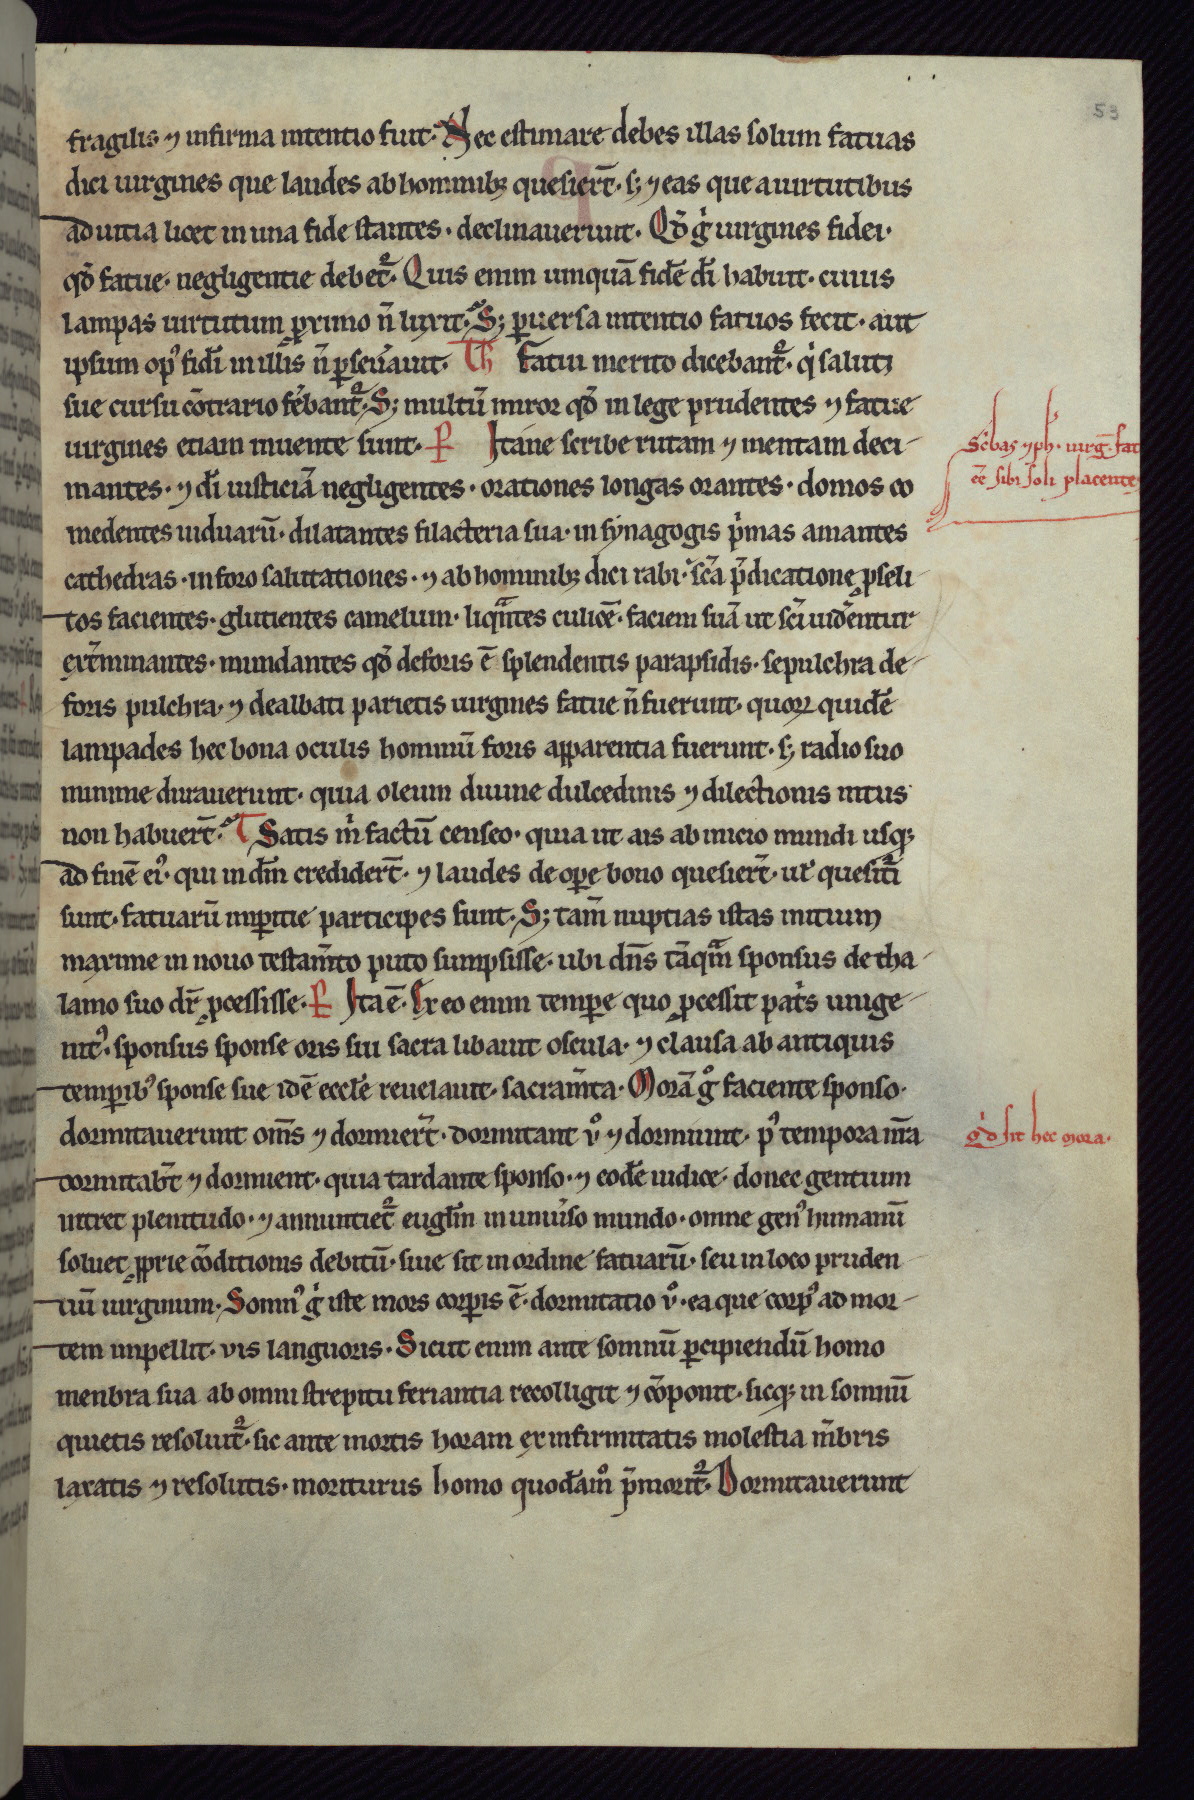 53
fragilis ⁊ infirma intentio fuit. Nec estimare debes illas solum fatuas
dici uirgines que laudes ab hominibꝫ quesier̄t. sꝫ ⁊ eas que a uirtutibus
ad uitia licet in una fide stantes. declinauerunt. Qd̄ gͥ uirgines fidei.
qd̄ fatue. negligentie debet᷑. Quis enim umquā fidē dī habuit. cuius
lampas uirtutum ꝓximo n̄ luxit. Sꝫ ꝑuersa intentio fatuos fecit. aut
ipsum opꝰ fidī in illis n̄ ꝑseu̓auit. Th Fatui merito dicebant᷑. qͥ saluti
sue cursu cōtrario fe̓bant᷑. Sꝫ multū miror qd̄ in lege prudentes ⁊ fatue
uirgines etiam inuente sunt. P Itane scribe rutam ⁊ mentam deci-
mantes. ⁊ dī iusticiā negligentes. orationes longas orantes. domos co
medentes uiduarū. dilatantes filacteria sua. in synagogis p̄mas amantes
cathedras. in foro salutationes. ⁊ ab hominibꝫ dici rabi. sc̄a p̄dicatione ꝓseli-
tos facientes. glutientes camelum. liqᷓntes culicē. faciem suā ut sc̄i uidēntur
ext̄minantes. mundantes qd̄ deforis ē splendentis parapsidis. sepulchra de-
foris pulchra. ⁊ dealbati parietis uirgines fatue n̄ fuerunt. quoꝝ quidē
lampades hec bona oculis hominū foris apparentia fuerunt. sꝫ radio suo
minime durauerunt. quia oleum diuine dulcedinis ⁊ dilectionis intus
non habuer̄t. T Satis m̄ factū censeo. quia ut ais ab inicio mundi usqꝫ
ad finē eiꝰ. qui in dn̄m credider̄t. ⁊ laudes de oꝑe bono quesier̄t. ut̓ quesit̄i
sunt. fatuarū inꝑitie participes sunt. Sꝫ tam̄ nuptias istas initium
maxime in nouo testam̄to puto sumpsisse. ubi dn̄s tāqᷓm sponsus de tha-
lamo suo dr̄ ꝓcessisse. P Ita ē. Ex eo enim tempe quo ꝓcessit pat̓s unige-
nitꝰ. sponsus sponse oris sui sacra libauit oscula. ⁊ clausa ab antiquis
temꝑibꝰ sponse sue idē eccl̄e reuelauit. sacram̄ta. Morā gͦ faciente sponso.
dormitauerunt om̄s ⁊ dormier̄t. dormitant uͦ ⁊ dormiunt. pꝰ tempora nr̄a
dormitab̄t ⁊ dormient. quia tardante sponso. ⁊ eodē iudice. donec gentium
intret plenitudo. ⁊ annuntiet᷑ eugl̄m in uniu̓so mundo. omne genꝰ humanū
soluet ꝓprie cōditionis debitū. siue sit in ordine fatuarū. seu in loco pruden-
tiū uirginum. Somnꝰ gͥ iste mors corꝑis ē. dormitatio uͦ. ea que corpꝰ ad mor-
tem inpellit. vis languoris. Sicut enim ante somnū ꝑcipiendū homo
menbra sua ab omni strepitu feriantia recolligit ⁊ cōponit. sicqꝫ in somnū
quietis resoluit᷑. sic ante mortis horam ex infirmitatis molestia m̄bris
laxatis ⁊ resolutis. moriturus homo quodāmͦ p̄morit᷑. Dormitauerunt
Sc̓bas ⁊ ph. uirg̅. fat
ēē sibi soli placente
qͥd sit hec mora.